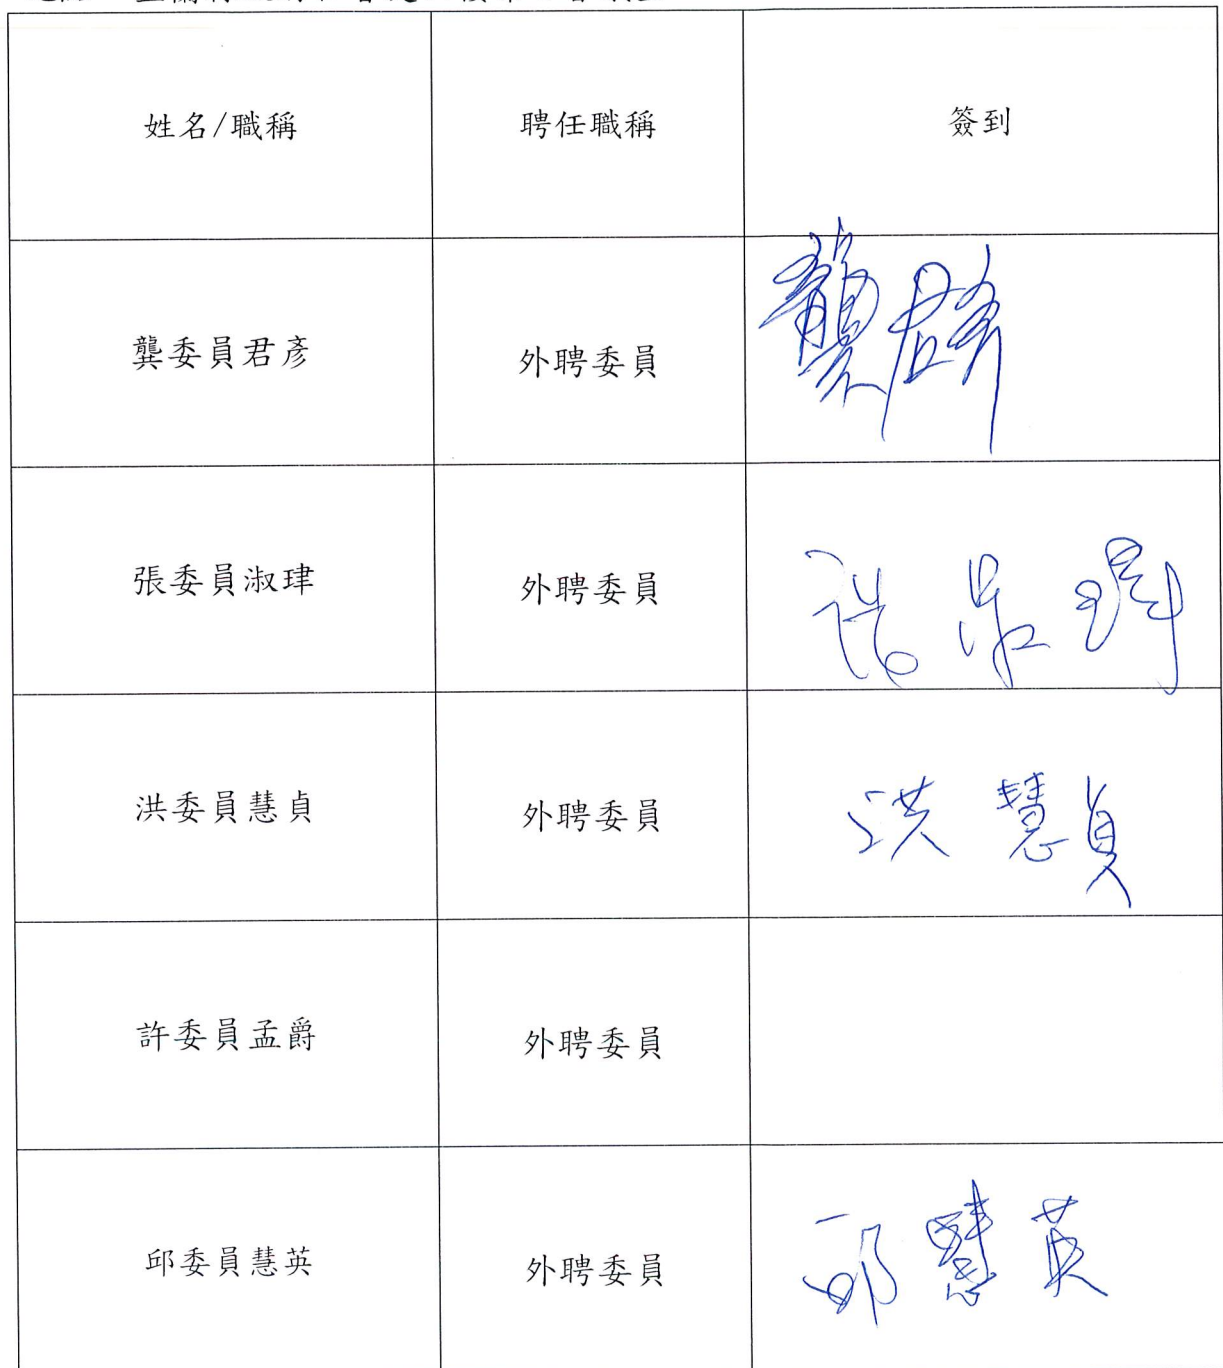 姓名/職稱 聘任職稱 簽到
龔委員君彥 外聘委員 龔君彥
張委員淑珒 外聘委員 張淑珒
洪委員慧貞 外聘委員 洪慧貞
許委員孟爵 外聘委員
邱委員慧英 外聘委員 邱慧英